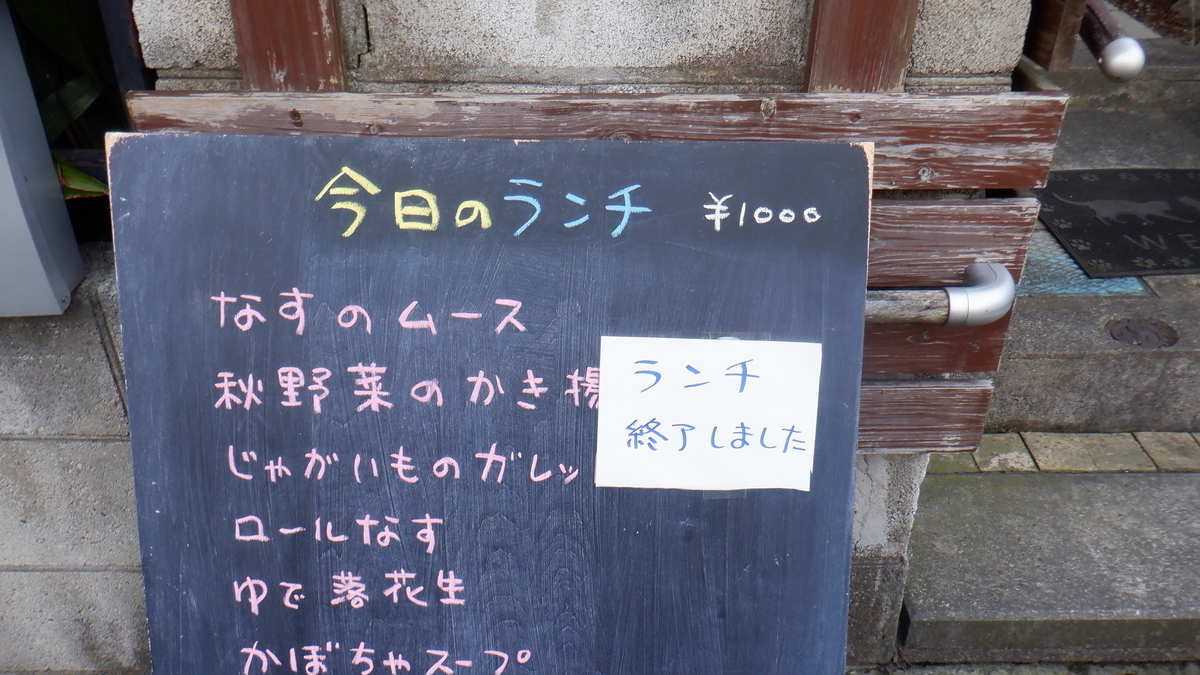 今日のランチ ¥1000
なすのムース
秋野菜のかき揚
じゃがいものガレッ
ロールなす
ゆで落花生
かぼちゃスープ
ランチ
終了しました
WE